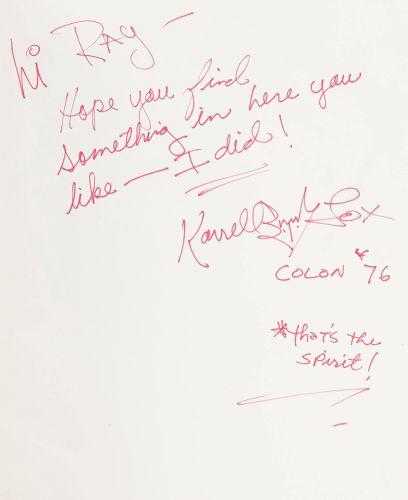 hi RAY —
Hope you find
something in here you
like — I did!
Karrell Fox
COLON * '76
*that's the
spirit!